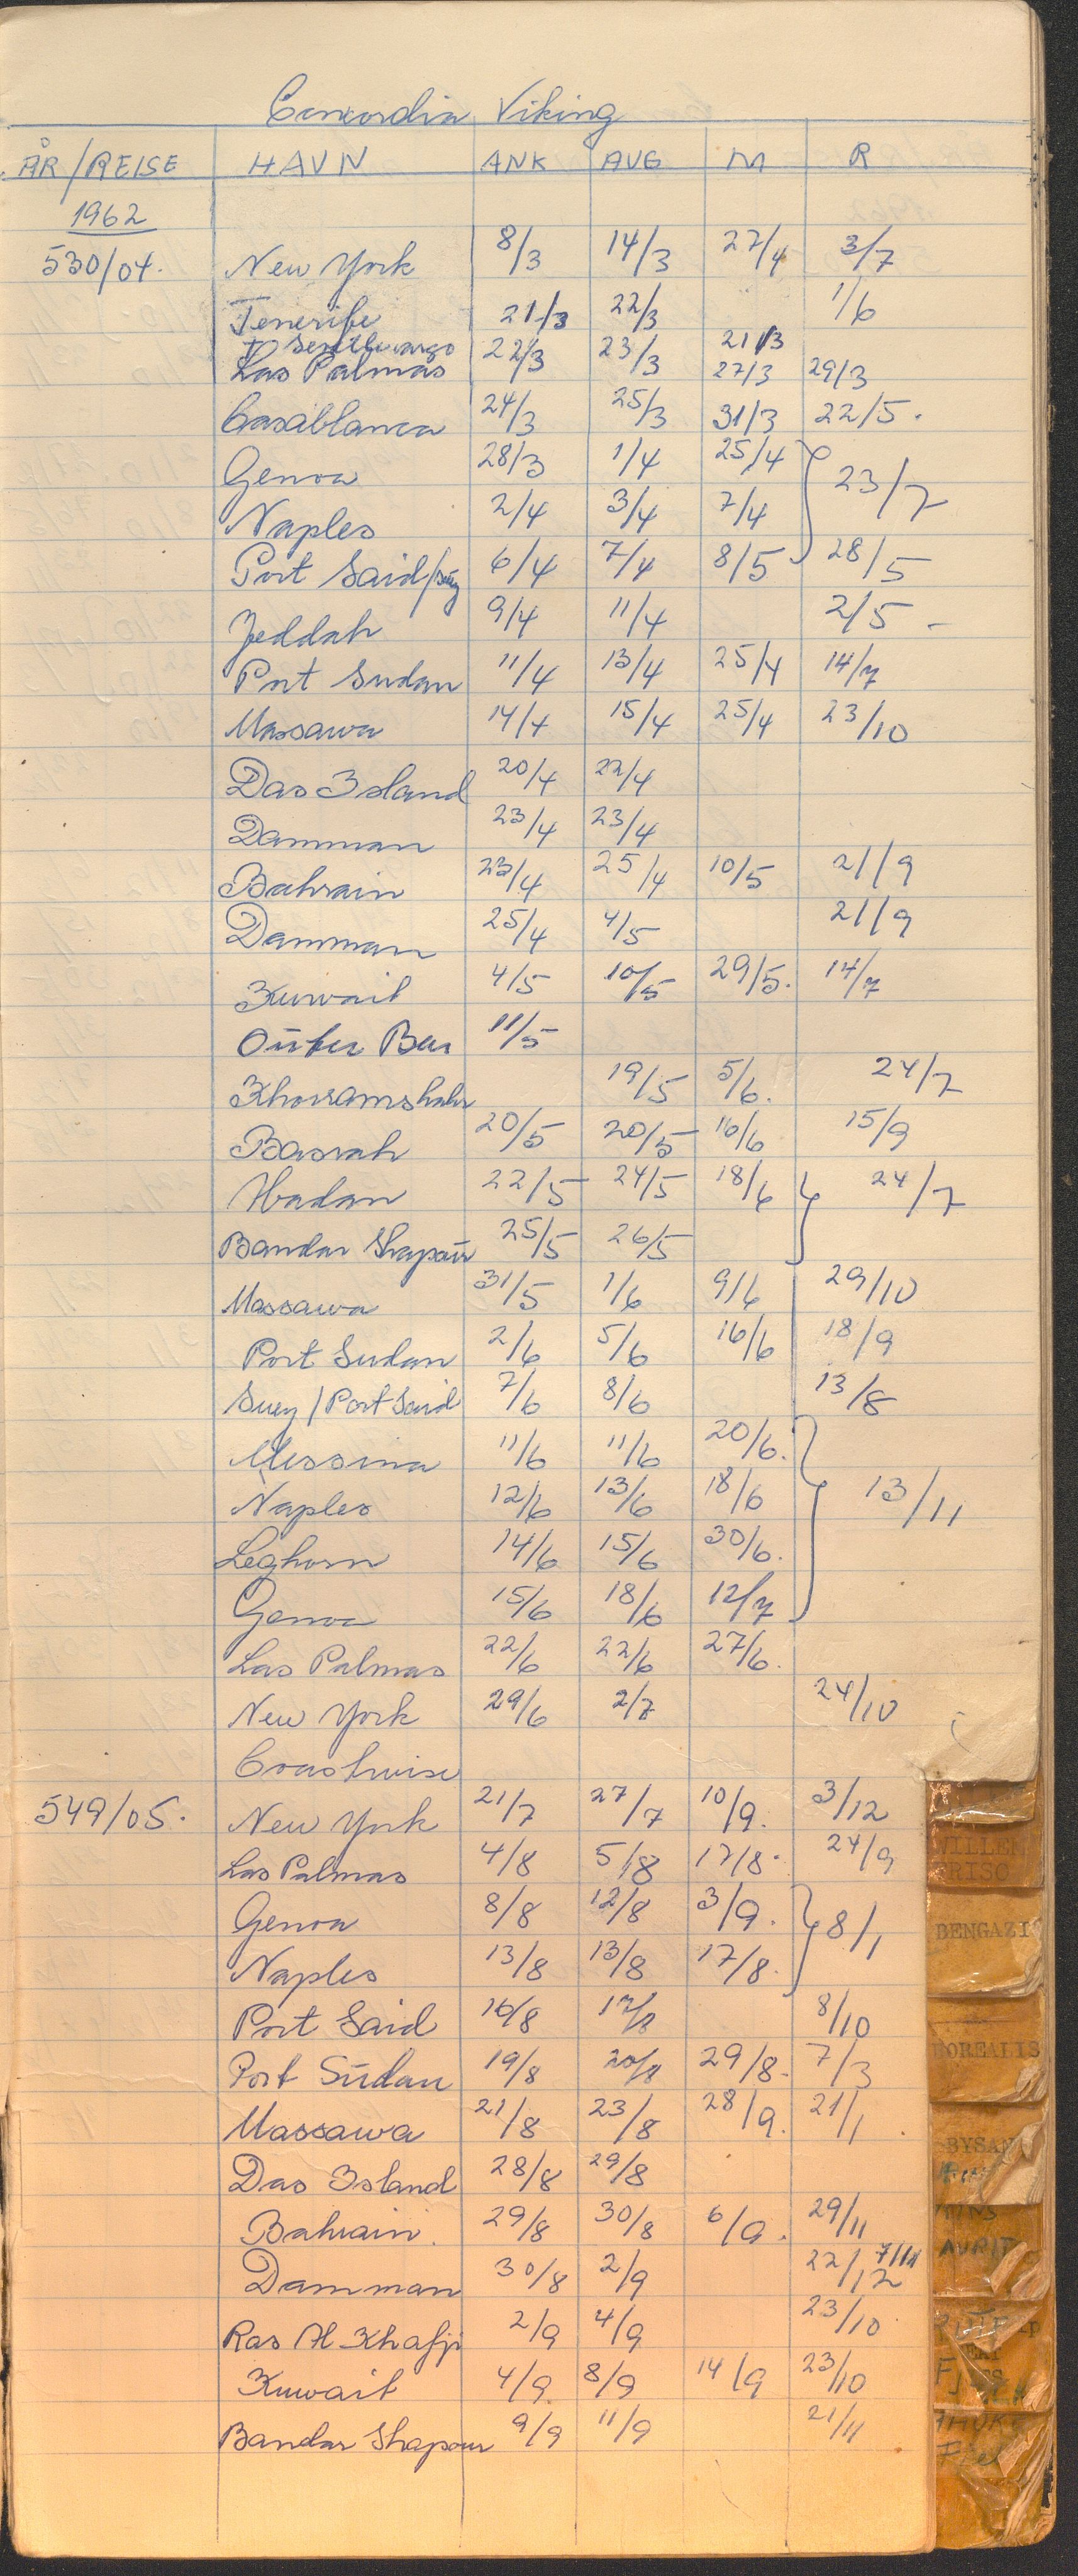 Concordia Viking
ÅR/REISE HAVN ANK AVG M R
1962
530/04. New York 8/3 14/3 27/4 3/7
Tenerife 21/3 22/3 1/6
Las Palmas 22/3 23/3 21/3 27/3 29/3
Casablanca 24/3 25/3 31/3 22/5.
Genoa 28/3 1/4 25/4 } 23/7
Naples 2/4 3/4 7/4
Port Said/Suez 6/4 7/4 8/5 28/5
Jeddah 9/4 11/4 2/5 -
Port Sudan 11/4 13/4 25/4 14/7
Massawa 14/4 15/4 25/4 23/10
Das Island 20/4 22/4
Damman 23/4 23/4
Bahrain 23/4 25/4 10/5 21/9
Damman 25/4 4/5 21/9
Kuwait 4/5 10/5 29/5. 14/7
Outer Bar 11/5
Khorramshahr 19/5 5/6. 24/7
Basrah 20/5 20/5 16/6 15/9
Abadan 22/5 24/5 18/6 } 24/7
Bandar Shapour 25/5 26/5
Massawa 31/5 1/6 9/6 29/10
Port Sudan 2/6 5/6 16/6 18/9
Suez/Port Said 7/6 8/6 13/8
Messina 11/6 11/6 20/6. } 13/11
Naples 12/6 13/6 18/6
Leghorn 14/6 15/6 30/6.
Genoa 15/6 18/6 12/7
Las Palmas 22/6 22/6 27/6.
New York 29/6 2/7 24/10
Coastwise
549/05. New York 21/7 27/7 10/9. 3/12
Las Palmas 4/8 5/8 17/8. 24/9
Genoa 8/8 12/8 3/9. } 8/1
Naples 13/8 13/8 17/8.
Port Said 16/8 17/8 8/10
Port Sudan 19/8 20/8 29/8. 7/3
Massawa 21/8 23/8 28/9. 21/1
Das Island 28/8 29/8
Bahrain. 29/8 30/8 6/9. 29/11
Damman 30/8 2/9 22/12 7/11
Ras Al Khafji 2/9 4/9 23/10
Kuwait 4/9 8/9 14/9 23/10
Bandar Shapour 9/9 11/9 21/11
BENGAZI
BOREALIS